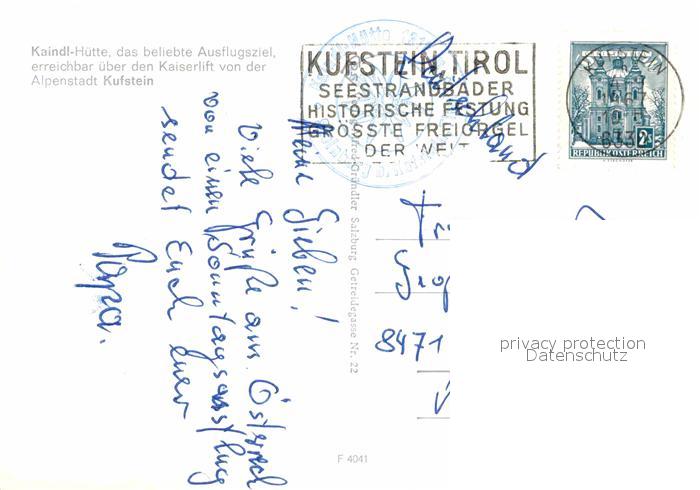 Kaindl-Hütte, das beliebte Ausflugsziel,
erreichbar über den Kaiserlift von der
Alpenstadt Kufstein
KUFSTEIN TIROL
SEESTRANDBÄDER
HISTORISCHE FESTUNG
GRÖSSTE FREIORGEL
DER WELT
KUFSTEIN
633
2S
REPUBLIK ÖSTERREICH
Meine Lieben!
Viele Grüße am Österreich
von einen Sonntagsausflug
sendet Euch euer
Papa.
Gründler Salzburg Getreidegasse Nr. 22
8471
privacy protection
Datenschutz
F 4041